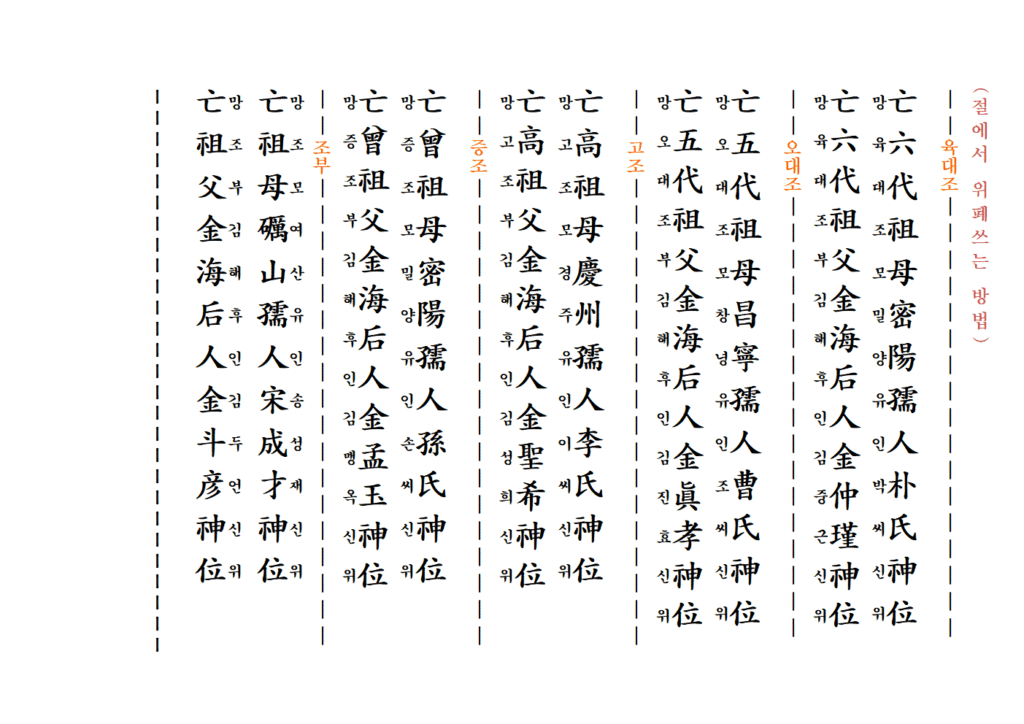 (절에서 위패쓰는 방법)
육대조
亡六代祖母密陽孺人朴氏神位
망육대조모밀양유인박씨신위
亡六代祖父金海后人金仲瑾神位
망육대조부김해후인김중근신위
오대조
亡五代祖母昌寧孺人曹氏神位
망오대조모창녕유인조씨신위
亡五代祖父金海后人金眞孝神位
망오대조부김해후인김진효신위
고조
亡高祖母慶州孺人李氏神位
망고조모경주유인이씨신위
亡高祖父金海后人金聖希神位
망고조부김해후인김성희신위
증조
亡曾祖母密陽孺人孫氏神位
망증조모밀양유인손씨신위
亡曾祖父金海后人金孟玉神位
망증조부김해후인김맹옥신위
조부
망조모여산유인송성재신위
亡祖母礪山孺人宋成才神位
망조부김해후인김두언신위
亡祖父金海后人金斗彦神位